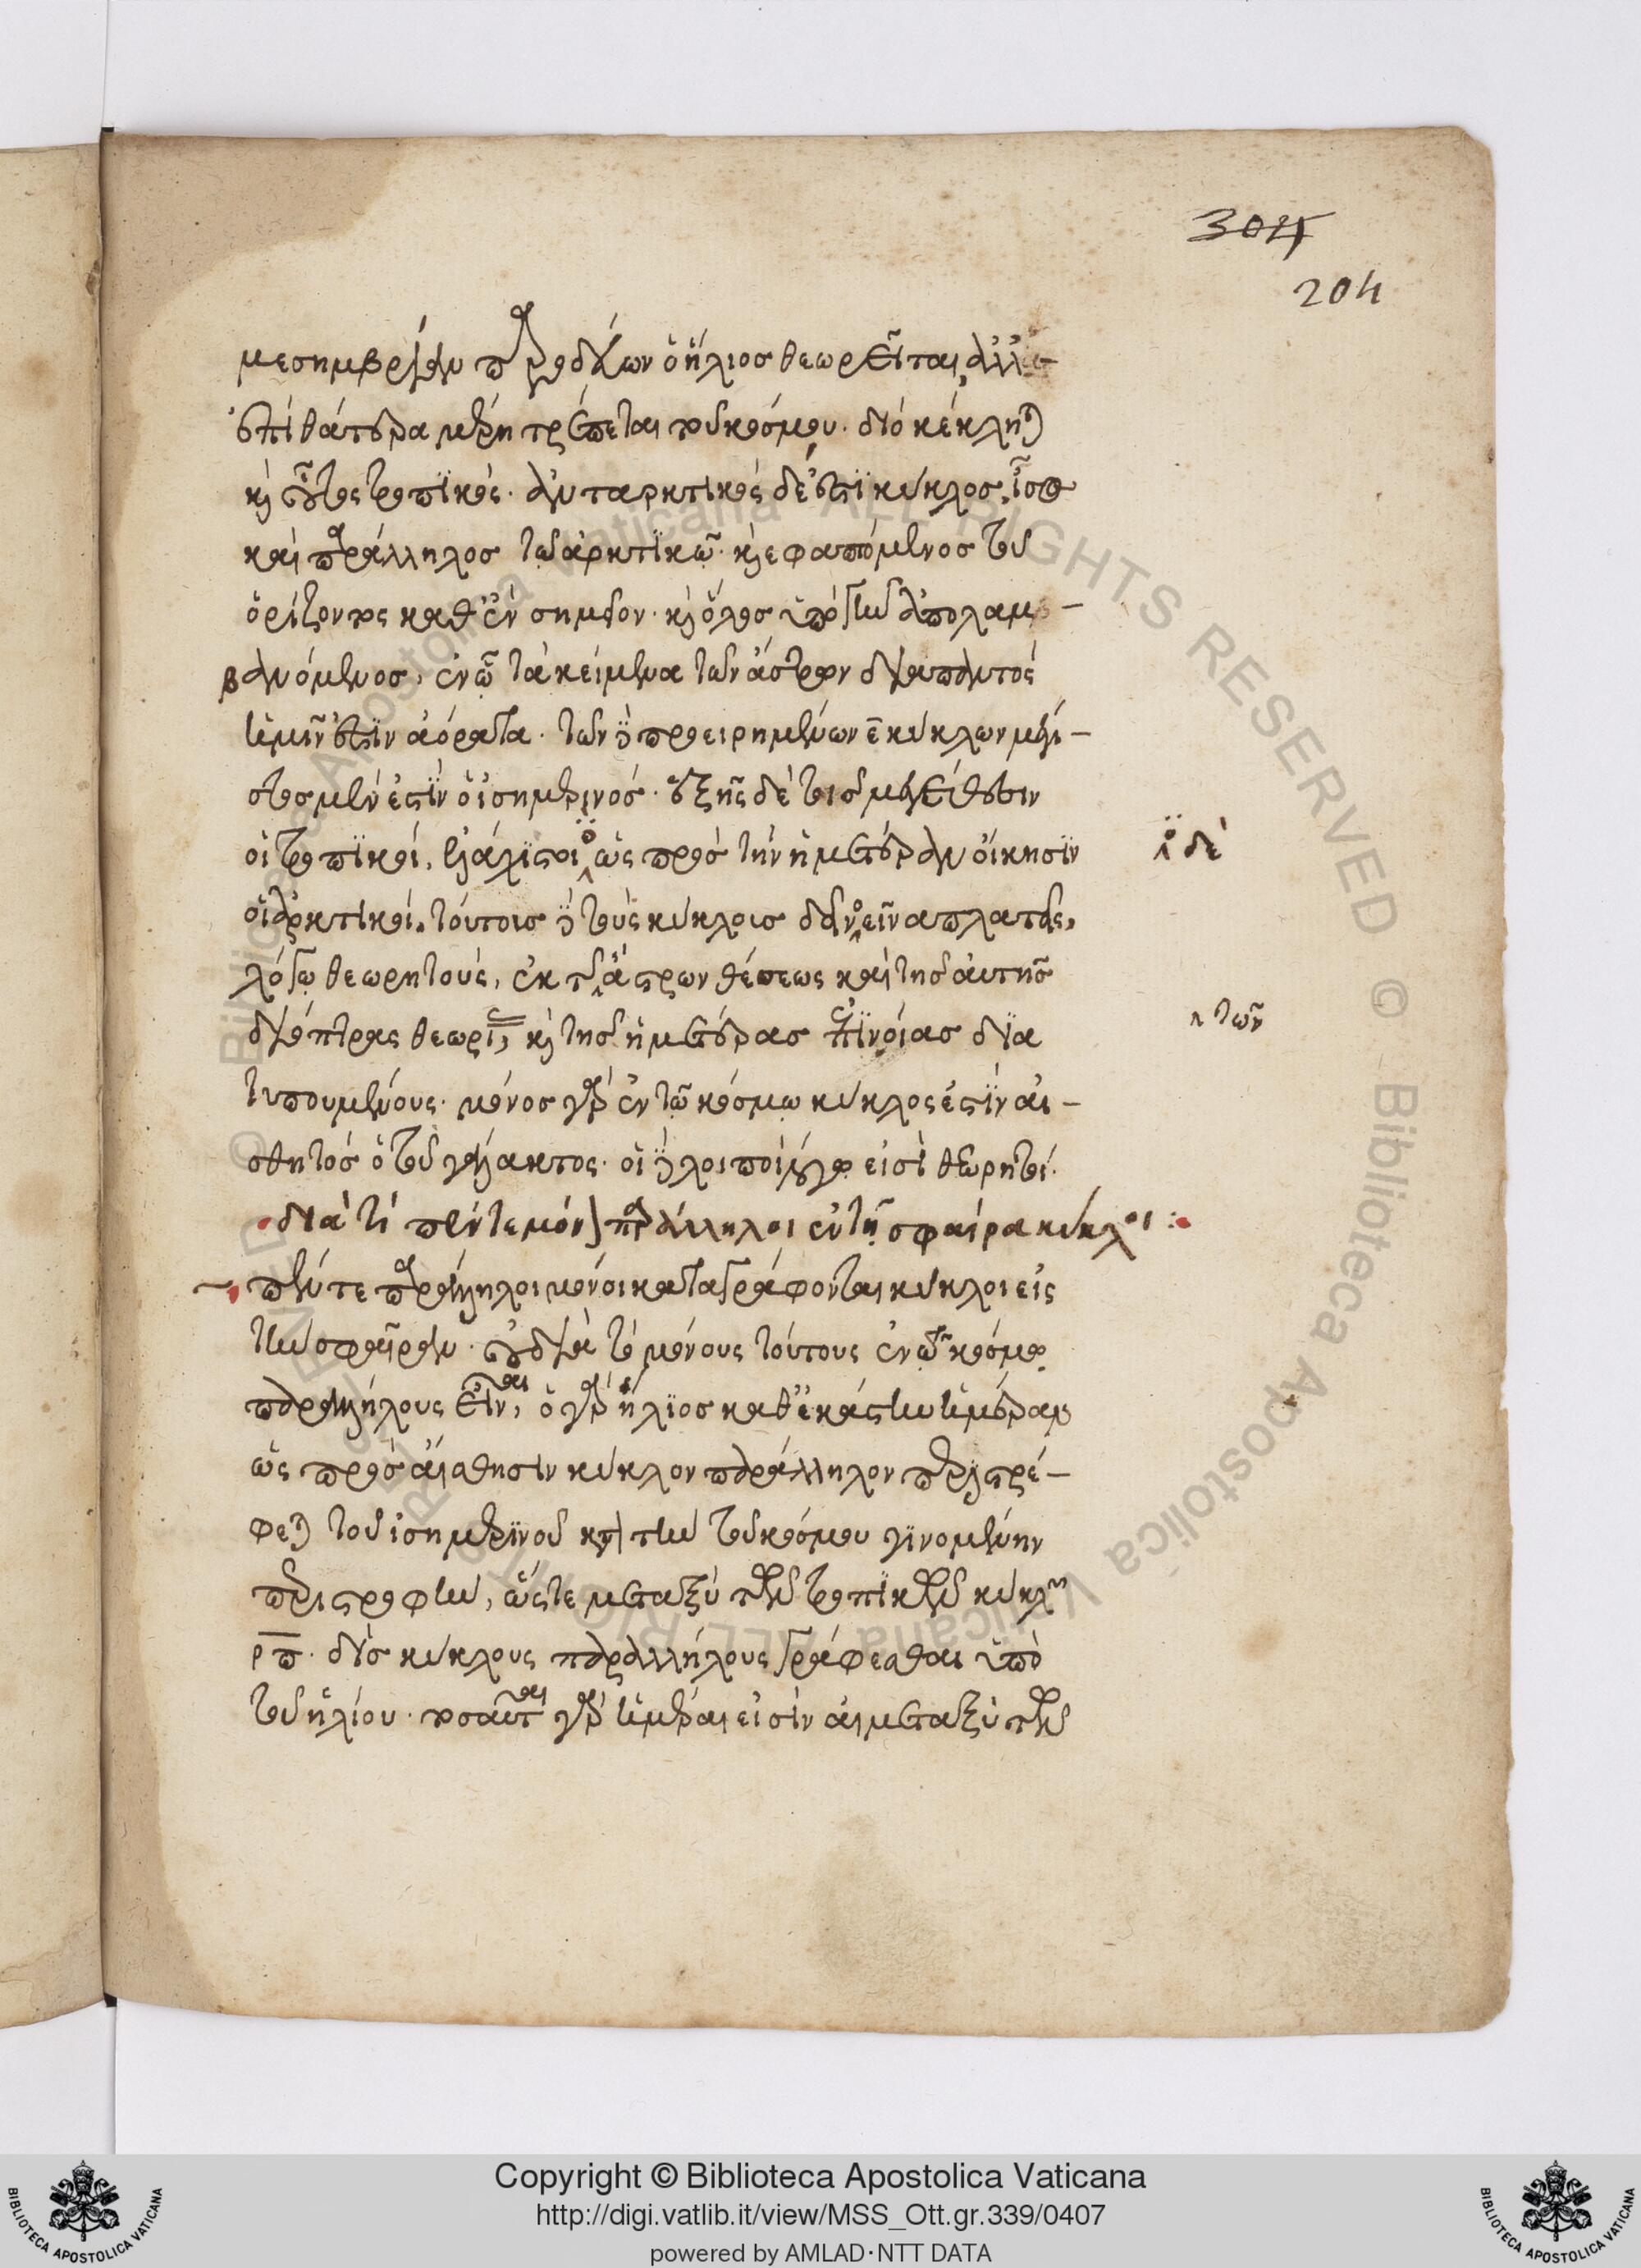 3015
204
μεσημβρίαν παροδεύων ὁ ἥλιος θεωρεῖται, ἀλλ'
ἐπὶ θάτερα μέρη τρέπεται τοῦ κόσμου. διὸ κέκληται
καὶ οὗτος τροπικός. ἀνταρκτικὸς δέ ἐστι κύκλος, ἴσος
καὶ παράλληλος τῷ ἀρκτικῷ. καὶ εφαπτόμενος τοῦ
ὁρίζοντος καθ' ἓν σημεῖον. καὶ ὅλος ὑπὸ γῆν ἀπολαμ–
βανόμενος, ἐν ᾧ τὰ κείμενα τῶν ἄστρων διαπαντός
ἡμῖν ἐστὶν ἀόρατα. τῶν δὲ προειρημένων ε̄ κύκλων μέγι–
στος μέν ἐστιν ὁ ἰσημερινός. ἑξῆς δὲ τοῖς μεγέθεσιν
οἱ τροπικοί, ἐλάχιστοι ὡς πρὸς τὴν ἡμετέραν οἴκησιν
δὲ
οἱ ἀρκτικοί. τούτοις δὲ τοὺς κύκλοις δεῖ νοεῖν ἀπλατεῖς,
λόγῳ θεωρητούς, ἐκ τῆς ἄστρων θέσεως καὶ τῆς αὐτῆς
διόπτρας θεωρι, καὶ τῆς ἡμετέρας ἐπινοίας δια
τῶν
τυπουμένους. μόνος γὰρ ἐν τῷ κόσμῳ κύκλος ἐστὶν αἰ–
σθητὸς ὁ τοῦ γάλακτος. οἱ δὲ λοιποὶ λόγῳ εἰσὶ θεωρητοί.
διὰ τί πέντε μόνοι παράλληλοι ἐν τῇ σφαίρα κύκλοι :
πέντε παράλληλοι μόνοι καταγράφονται κύκλοι εἰς
τὴν σφαῖραν. οὐ διὰ τὸ μόνους τούτους ἐν τῷ κόσμῳ
παραλλήλους εἶναι, ὁ γὰρ ἥλιος καθ' ἑκάστην ἡμέραν
ὡς πρὸς αἴσθησιν κύκλον παράλληλον περιστρέ–
φεται τοῦ ἰσημερινοῦ κατὰ τὴν τοῦ κόσμου γινομένην
περιστροφὴν, ὥστε μεταξὺ τῶν τροπικῶν κύκλων
ρπ. δύο κύκλους παραλλήλους γράφεσθαι ὑπὸ
τοῦ ἡλίου. τοσαῦται γὰρ ἡμέραι εἰσὶν αἱ μεταξὺ τῶν
Copyright © Biblioteca Apostolica Vaticana
http://digi.vatlib.it/view/MSS_Ott.gr.339/0407
powered by AMLAD·NTT DATA
BIBLIOTECA APOSTOLICA VATICANA
BIBLIOTECA APOSTOLICA VATICANA